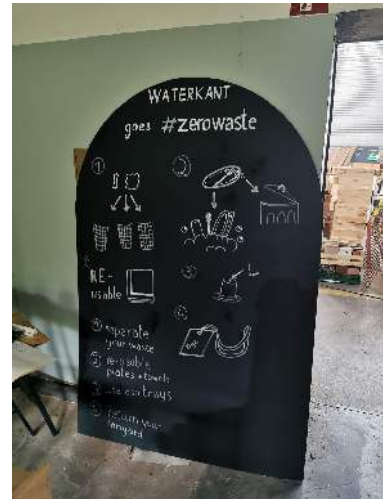 WATERKANT
goes #zerowaste
①
②
RE-
usable
③
④
① separate
your waste
② re-usable
plates + bowls
③ use ashtrays
④ return your
lanyard